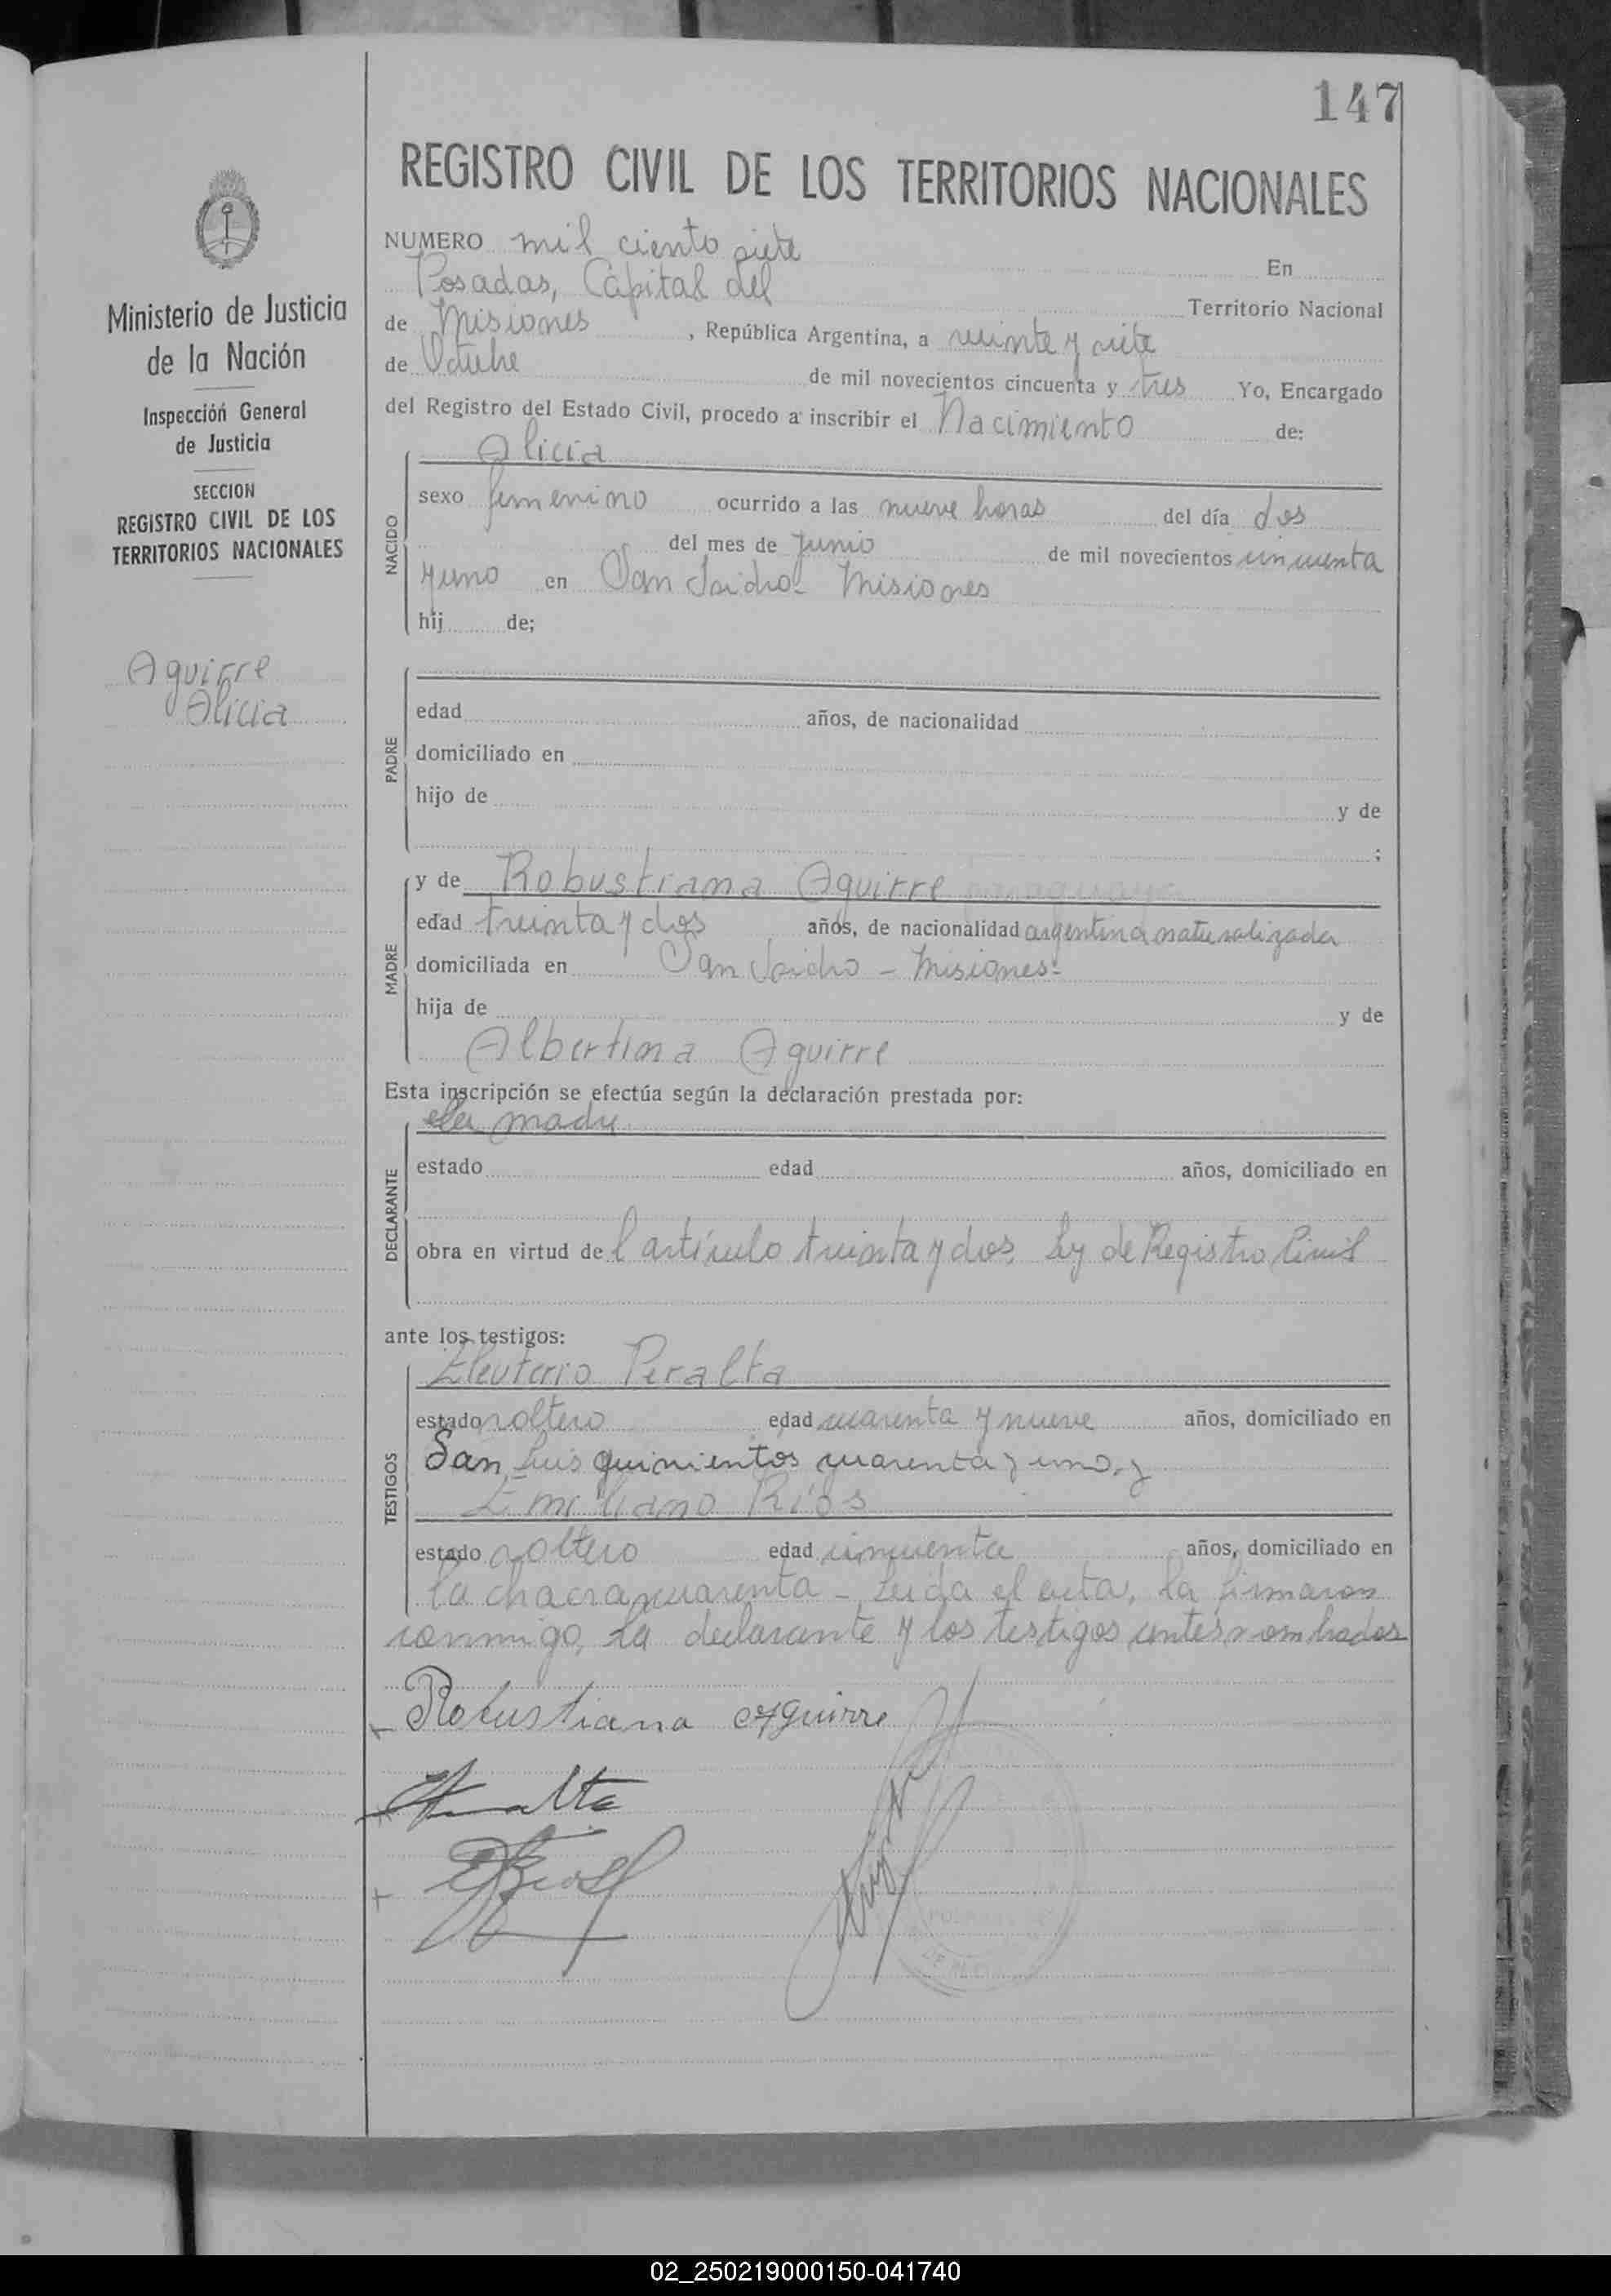 147
REGISTRO CIVIL DE LOS TERRITORIOS NACIONALES
Ministerio de Justicia
de la Nación
Inspección General
de Justicia
SECCION
REGISTRO CIVIL DE LOS
TERRITORIOS NACIONALES
Aguirre
Alicia
NUMERO mil ciento siete
En
Posadas, Capital del
Territorio Nacional
de Misiones, República Argentina, a veinte y siete
de Octubre de mil novecientos cincuenta y tres Yo, Encargado
del Registro del Estado Civil, procedo a inscribir el Nacimiento de:
NACIDO
Alicia
sexo femenino ocurrido a las nueve horas del día dos
del mes de Junio de mil novecientos cincuenta
y uno en San Isidro - Misiones
hij de;
PADRE
edad años, de nacionalidad
domiciliado en
hijo de y de
;
MADRE
y de Robustiana Aguirre
edad treinta y dos años, de nacionalidad argentina naturalizada
domiciliada en San Isidro - Misiones-
hija de y de
Albertina Aguirre
Esta inscripción se efectúa según la declaración prestada por:
DECLARANTE
la madre
estado edad años, domiciliado en
obra en virtud del artículo treinta y dos Ley de Registro Civil
ante los testigos:
TESTIGOS
Eleuterio Peralta
estado soltero edad cuarenta y nueve años, domiciliado en
San Luis quinientos cuarenta y uno, y
Emiliano Ríos
estado soltero edad cincuenta años, domiciliado en
la chacra cuarenta - Leida el acta, la firmaron
conmigo, la declarante y los testigos antes nombrados
Robustiana Aguirre
02_250219000150-041740